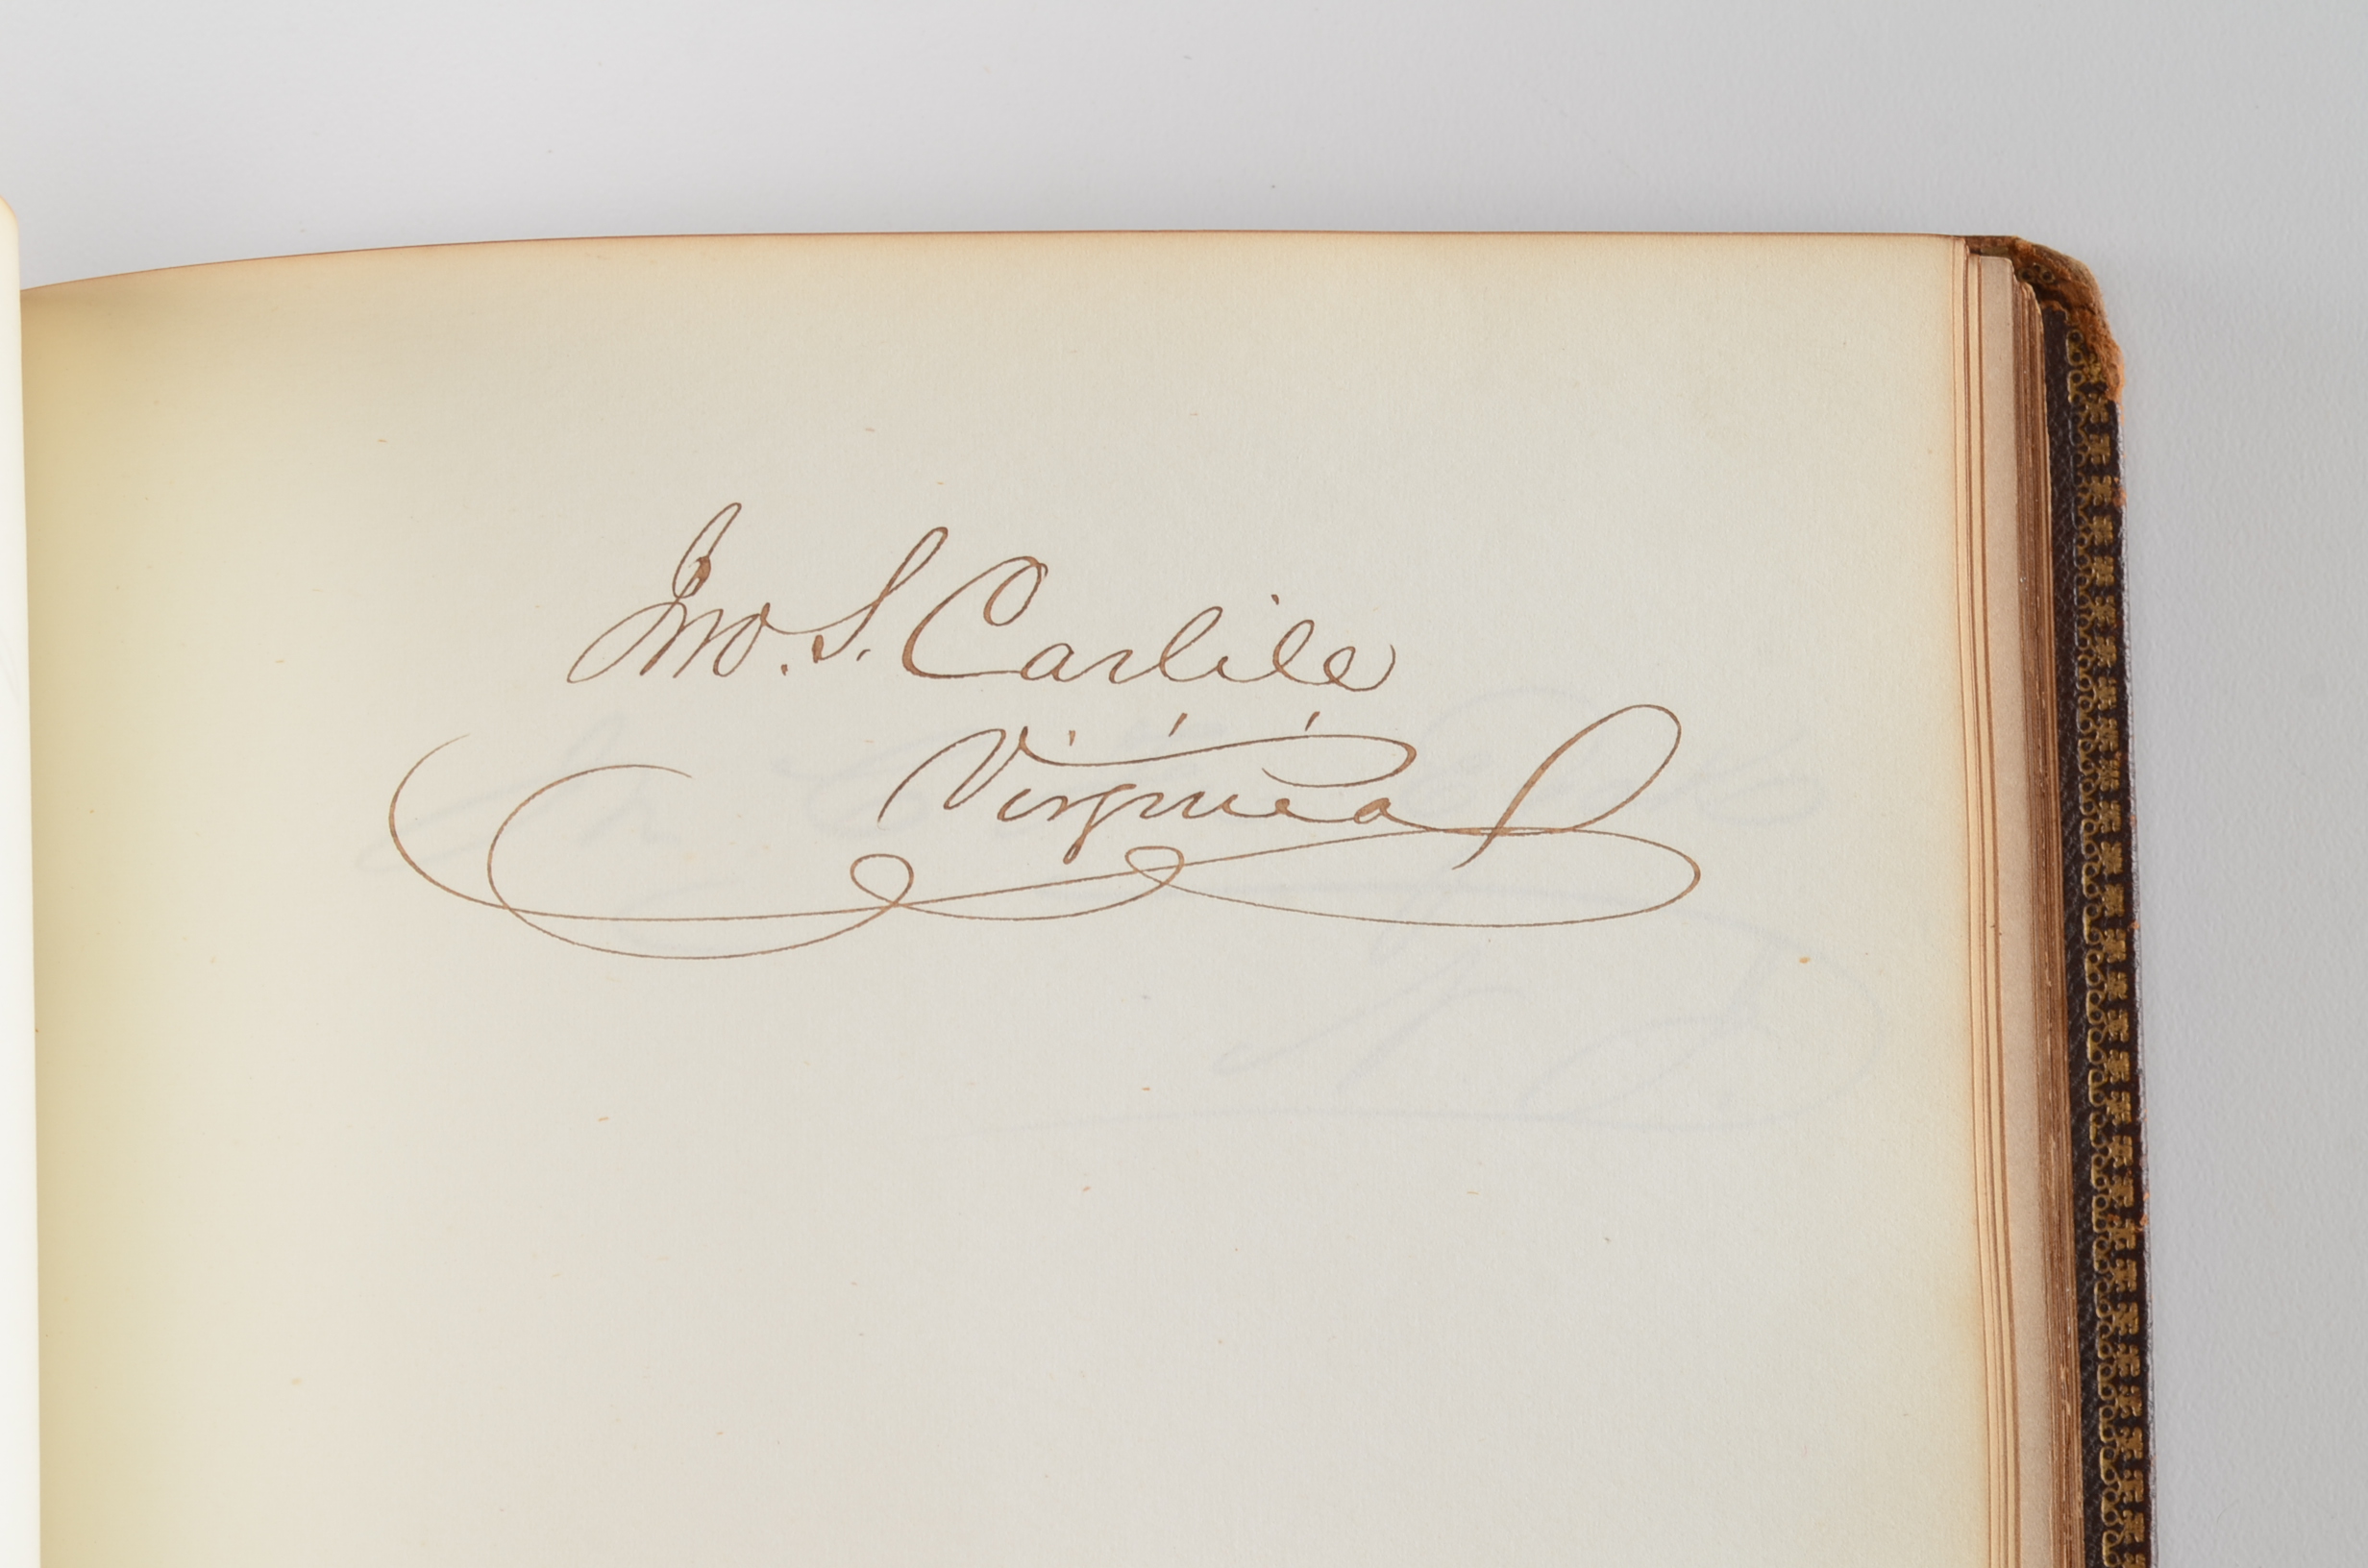 Jno. S. Carlile
Virginia